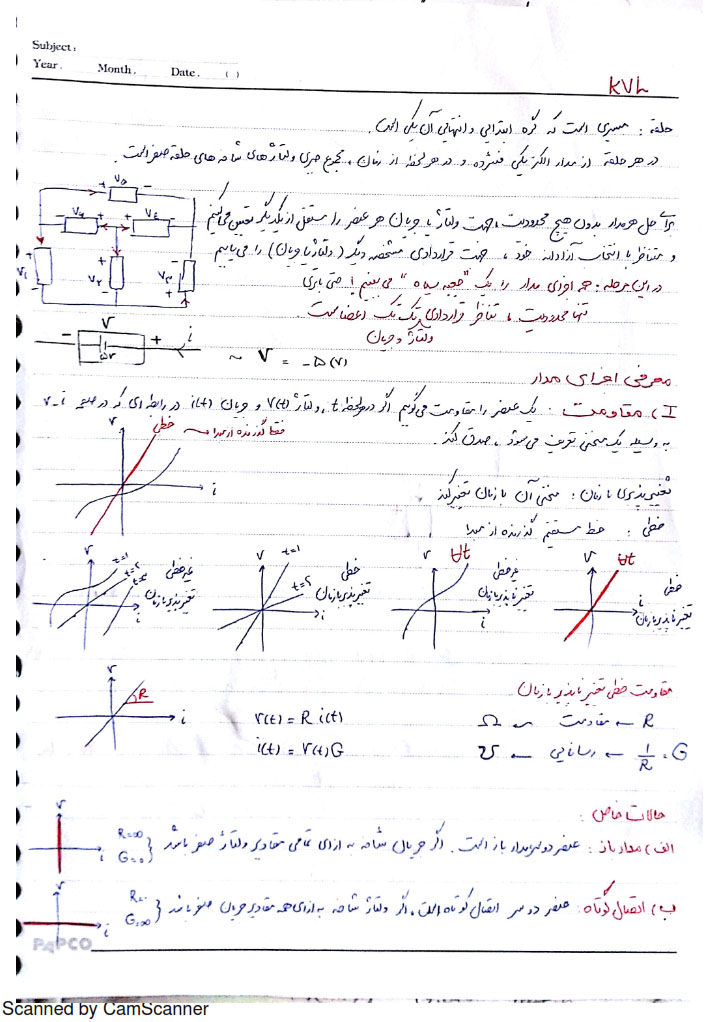 Subject:
Year. Month. Date. ( )
KVL
حلقه : مسیری است که گره ابتدایی و انتهایی آن یکی است.
در هر حلقه از مدار الکتریکی فشرده و در هر لحظه از زمان ، مجموع جبری ولتاژهای شاخه های حلقه صفر است.
برای حل هر مدار بدون هیچ محدودیت ، جهت ولتاژ یا جریان هر عنصر را مستقل از یکدیگر تعیین می کنیم
و متناظر با انتخاب آزادانه خود ، جهت قراردادی مشخصه دیگر (ولتاژ یا جریان) را می یابیم
در این مرحله : همه اجزای مدار را یک "جعبه سیاه" می بینیم ! حتی باتری
تنها محدودیت ، تناظر قراردادی تک تک اعضا است.
ولتاژ و جریان
V۵
V۴ V٤
V۱ V۲ V۳
V
- + i
۵v
~ V = -۵(V)
معرفی اجزای مدار
I) مقاومت : یک عنصر را مقاومت می گوییم اگر در هر لحظه t ، ولتاژ V(t) و جریان i(t) در رابطه ای که در صفحه v-i
به وسیله یک منحنی تعریف می شود ، صدق کند.
v خطی فقط گذرنده از مبدا
i
تغییرپذیری با زمان : منحنی آن با زمان تغییر کند
خطی : خط مستقیم گذرنده از مبدا
v t=1 t=2 غیرخطی تغییرپذیر با زمان i
v t=1 t=2 خطی تغییرپذیر با زمان i
v ∀t غیرخطی تغییرناپذیر با زمان i
v ∀t خطی تغییرناپذیر با زمان i
مقاومت خطی تغییرناپذیر با زمان
v R i
V(t) = R i(t)
R ← مقاومت ← Ω
i(t) = V(t)G
G = 1/R ← رسانایی ← ℧
حالات خاص :
الف) مدار باز : عنصر دو سر مدار باز است. اگر جریان شاخه به ازای تمامی مقادیر ولتاژ صفر باشد } R=∞ G=0
v i
ب) اتصال کوتاه : عنصر دو سر اتصال کوتاه است ، اگر ولتاژ شاخه به ازای همه مقادیر جریان صفر باشد } R=0 G=∞
v i
PAPCO
Scanned by CamScanner